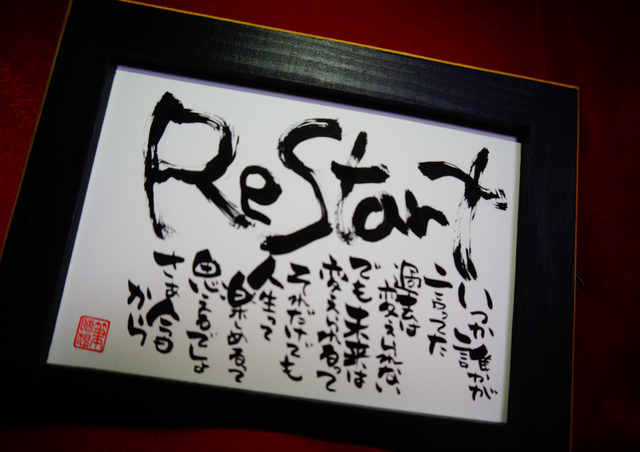 ReStart
いつか誰かが
言ってた
過去は変えられない
でも未来は
変えられるって
それだけでも
人生って
楽しめるって
思えるでしょ
さあ今日
から